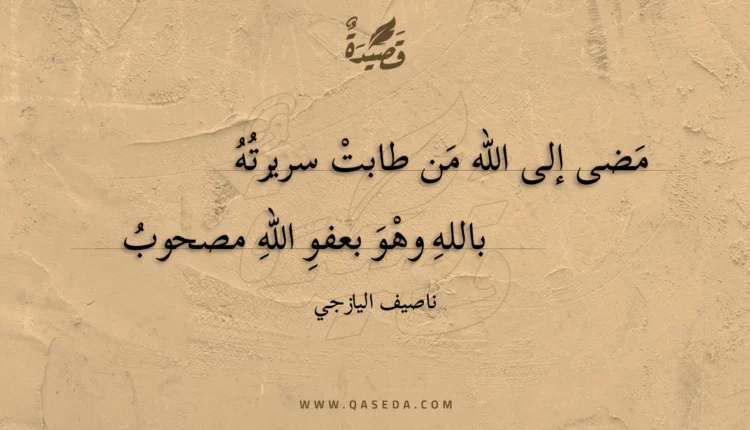 قَصِيْدَةٌ
مَضى إلى الله مَن طابتْ سريرتُهُ
باللهِ وهْوَ بعفوِ اللهِ مصحوبُ
ناصيف اليازجي
WWW.QASEDA.COM